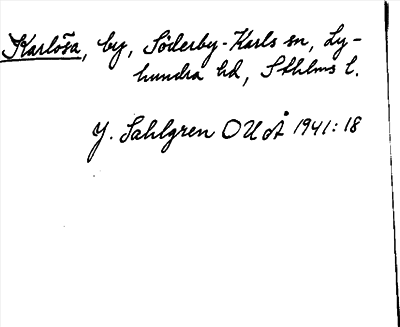 Karlösa, by, Söderby-Karls sn, Ly-
hundra hd, Sthlms l.
J. Sahlgren OUÅ 1941:18